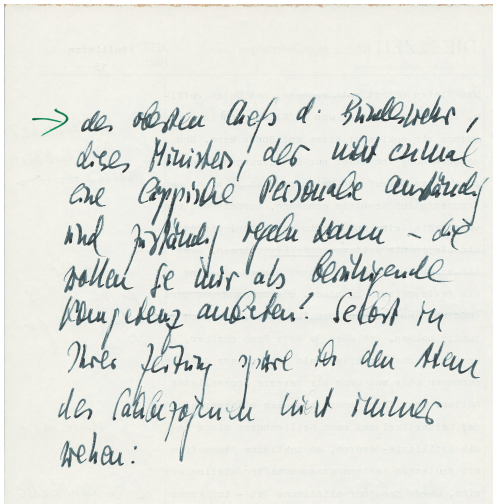 → des obersten Chefs d. Bundeswehr,
dieses Ministers, der nicht einmal
eine läppische Personalie anständig
und zuständig regeln kann – die
wollen Sie mir als beruhigende
Kompetenz anbieten? Selbst in
Ihrer Zeitung spüre ich den Atem
des nicht immer
wehen: